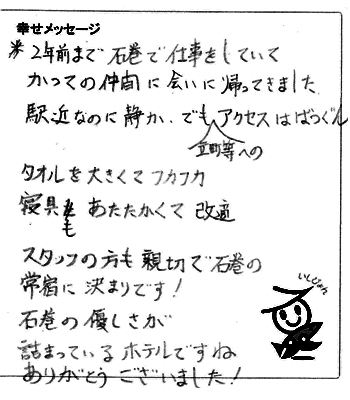 幸せメッセージ
* 2年前まで石巻で仕事をしていて
かつての仲間に会いに帰ってきました
駅近なのに静か、でもアクセスはばつぐん
立町等への
タオルも大きくてフカフカ
寝具も あたたかくて 改適
スタッフの方も親切で石巻の
常宿に決まりです!
石巻の優しさが
詰まっているホテルですね
ありがとうございました!
いしぴょん